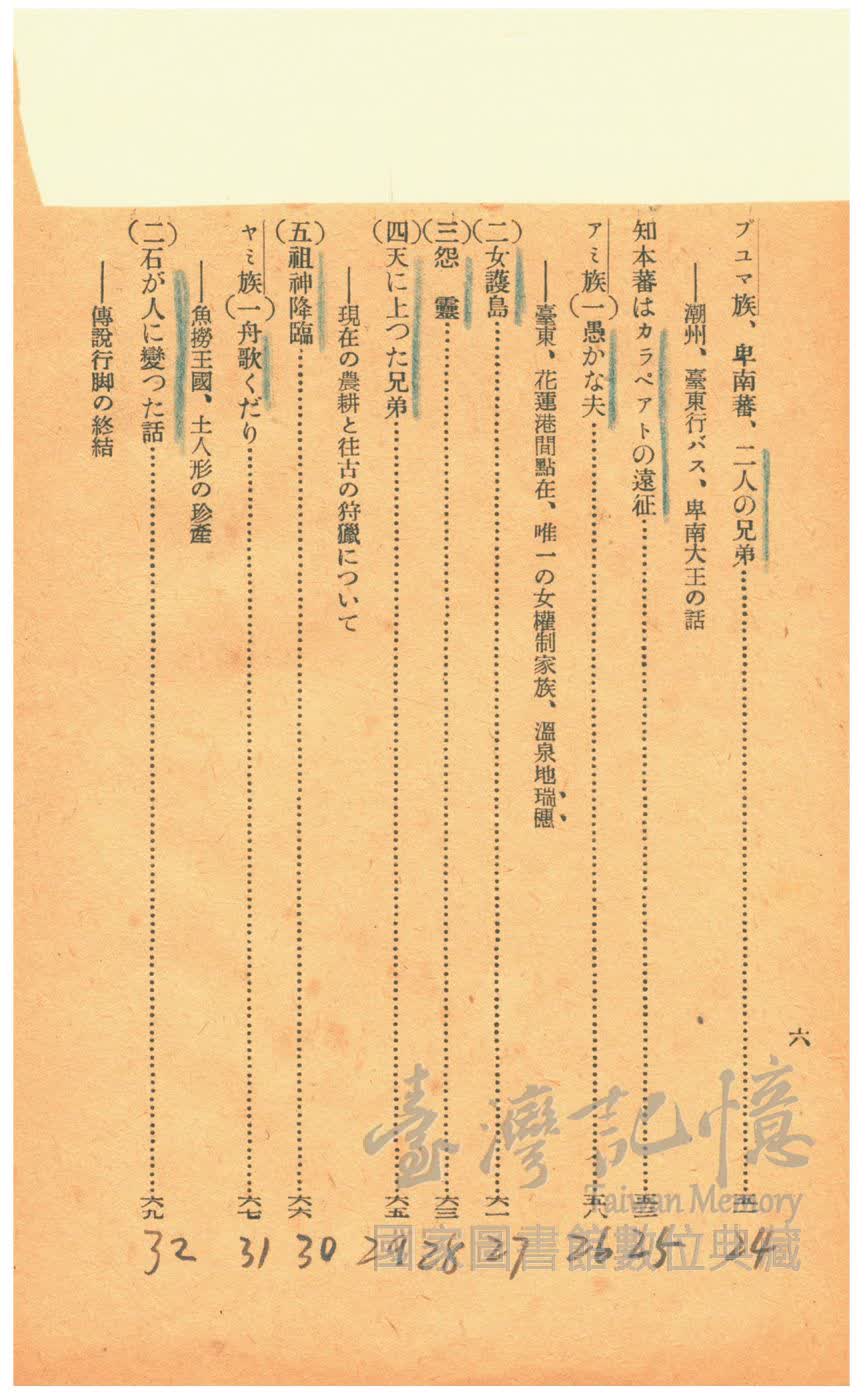 六
プユマ族、卑南蕃、二人の兄弟……五一
24
──潮州、臺東行バス、卑南大王の話
知本蕃はカラペアトの遠征……
25
アミ族(一)愚かな夫……五八
26
──臺東、花蓮港間點在、唯一の女權制家族、溫泉地瑞穗
(二)女護島……六一
27
(三)怨　靈……六三
28
(四)天に上つた兄弟……六五
29
──現在の農耕と往古の狩獵について
(五)祖神降臨……六六
30
ヤミ族(一)舟歌くだり……六七
31
──魚撈王國、土人形の珍產
(二)石が人に變つた話……六九
32
──傳說行脚の終結
臺灣記憶
Taiwan Memory
國家圖書館數位典藏